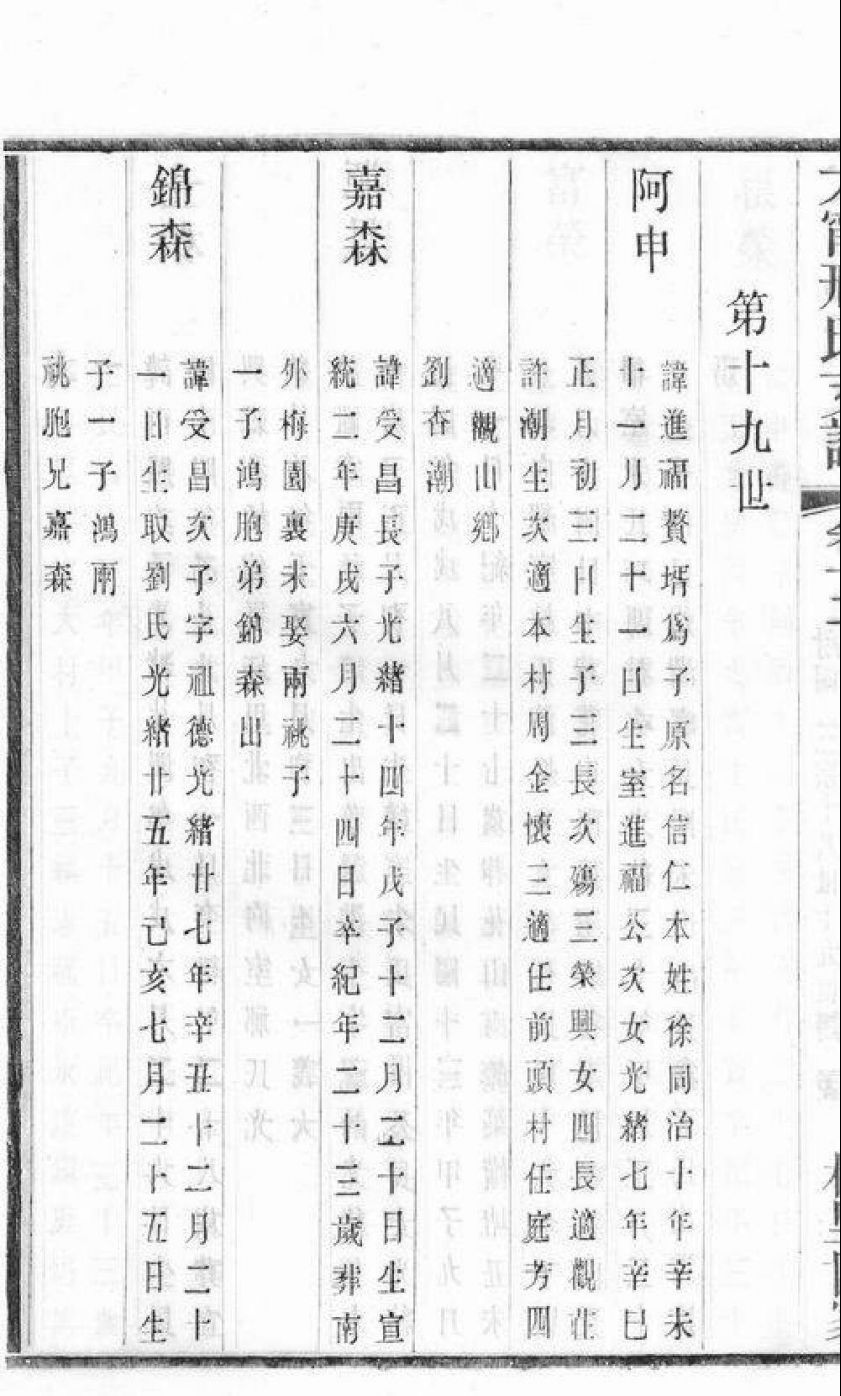 第十九世
阿申
諱進福贅壻爲子原名信仁本姓徐同治十年辛未
十一月二十一日生室進福公次女光緒七年辛巳
正月初三日生子三長次殤三榮興女四長適觀莊
許潮生次適本村周金懷三適任前頭村任庭芳四
適觀山鄉
劉杏潮
嘉森
諱受昌長子光緒十四年戊子十二月二十日生宣
統二年庚戌六月二十四日卒紀年二十三歲葬南
外梅園裏未娶兩祧子
一子鴻胞弟錦森出
錦森
諱受昌次子字祖德光緒廿七年辛丑十二月二十
一日生取劉氏光緒廿五年己亥七月二十五日生
子一子鴻兩
祧胞兄嘉森